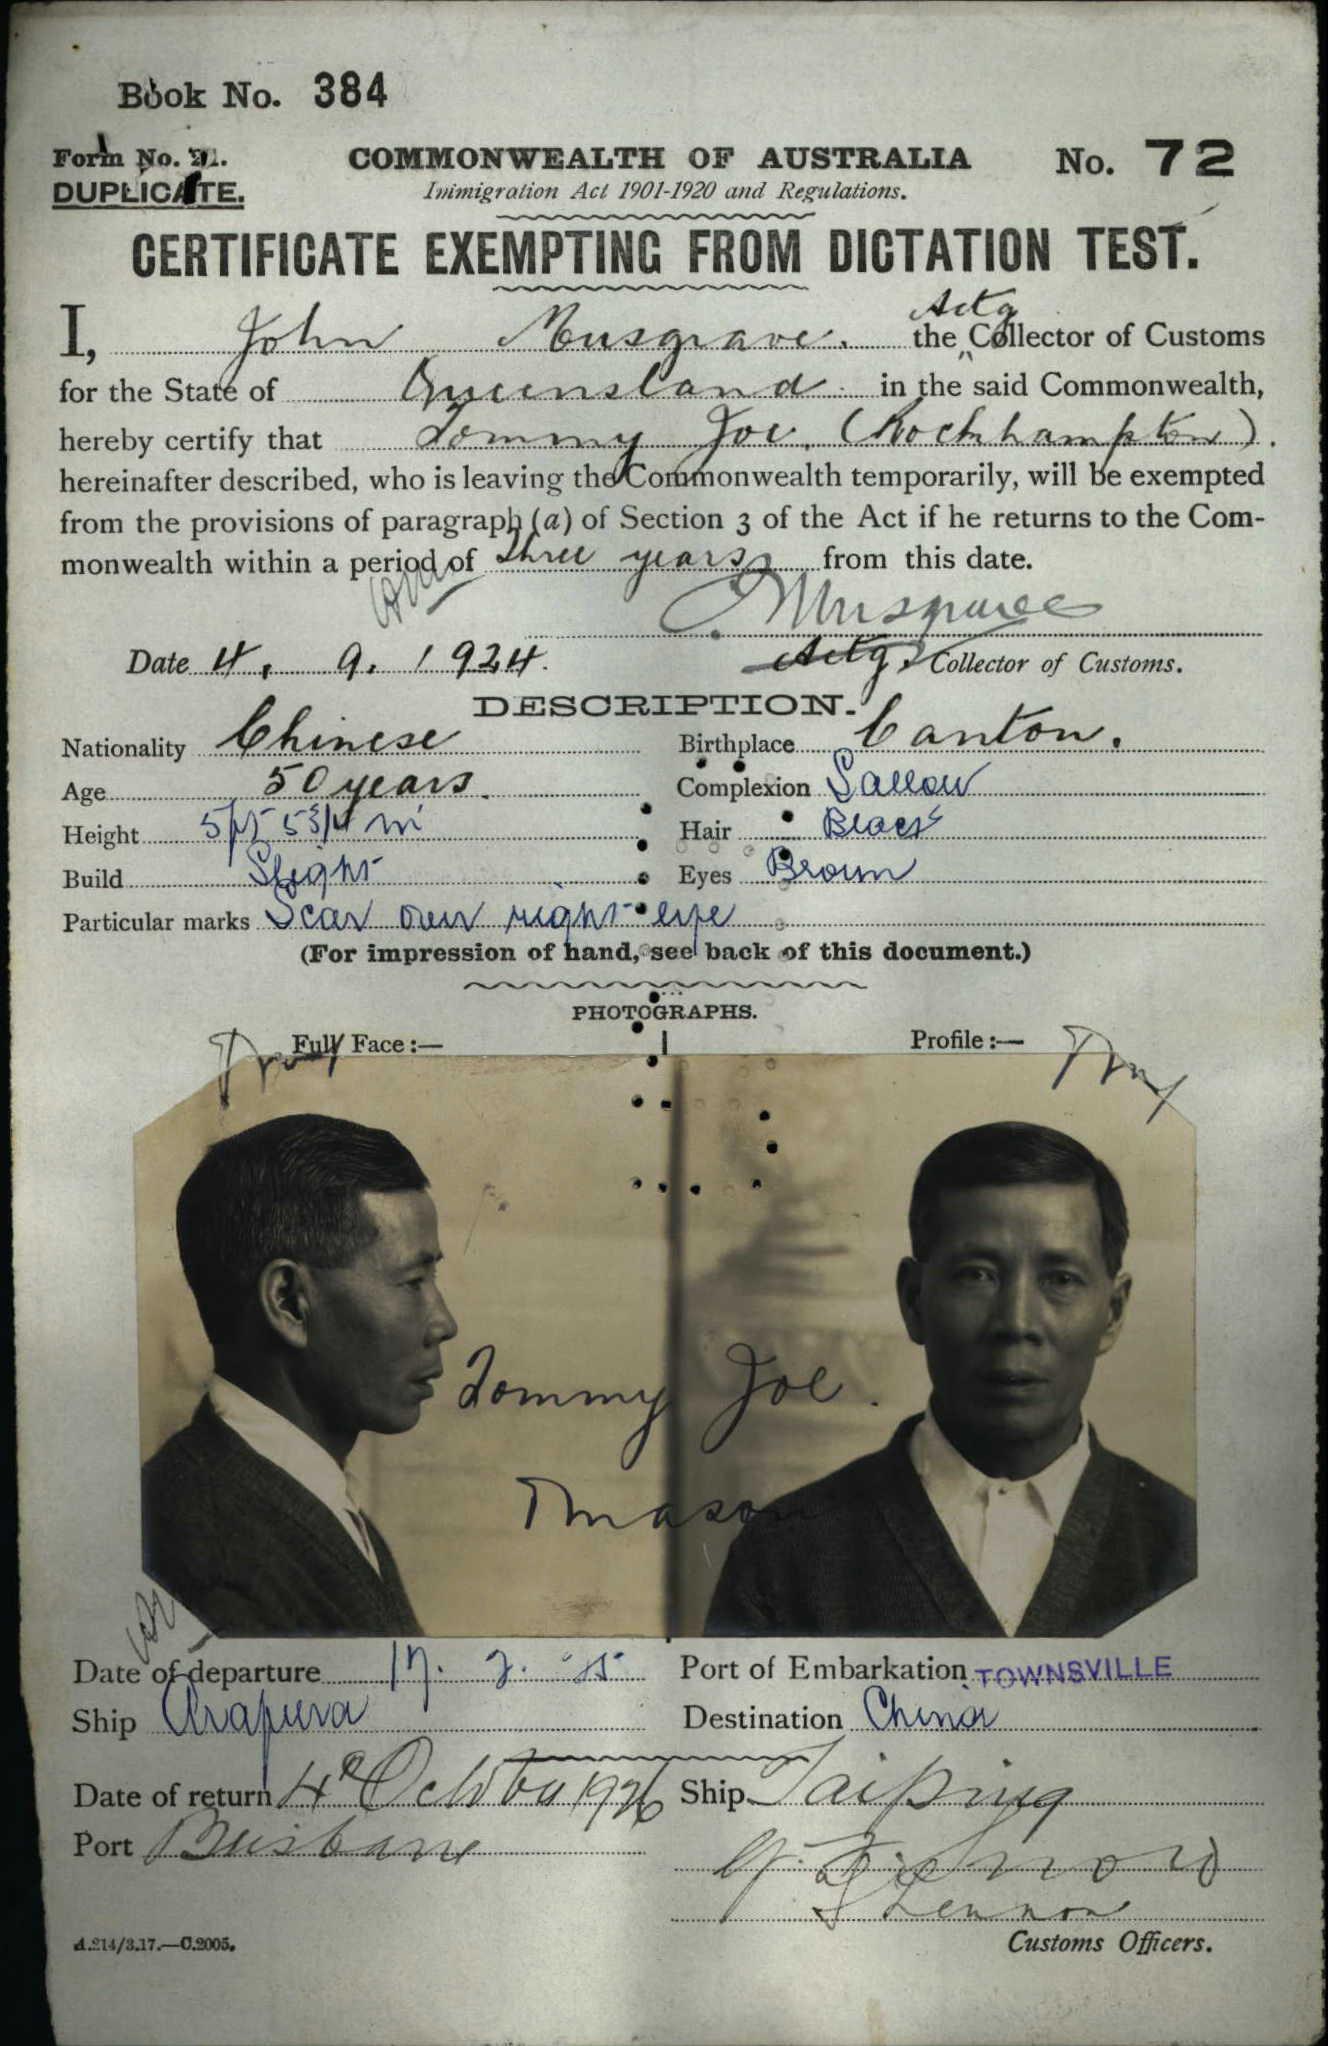 Book No. 384
Form No. 21.
DUPLICATE.
COMMONWEALTH OF AUSTRALIA
No. 72
Immigration Act 1901-1920 and Regulations.
CERTIFICATE EXEMPTING FROM DICTATION TEST.
I, John Musgrave. the Actg Collector of Customs
for the State of Queensland in the said Commonwealth,
hereby certify that Tommy Joe. (Rockhampton).
hereinafter described, who is leaving the Commonwealth temporarily, will be exempted
from the provisions of paragraph (a) of Section 3 of the Act if he returns to the Com-
monwealth within a period of three years from this date.
J Musgrave
Date 4. 9. 1924.
Actg. Collector of Customs.
DESCRIPTION.
Nationality Chinese
Birthplace Canton.
Age 50 years.
Complexion Sallow
Height 5ft 5 3/4 in
Hair Black
Build Slight
Eyes Brown
Particular marks Scar over right eye
(For impression of hand, see back of this document.)
PHOTOGRAPHS.
Full Face :—
Profile :—
Tommy Joe.
Date of departure 17. 2. 25
Port of Embarkation TOWNSVILLE
Ship Arafura
Destination China
Date of return 4th October 1926
Ship Taiping
Port Brisbane
Lennon
A.214/3.17.—C.2005.
Customs Officers.